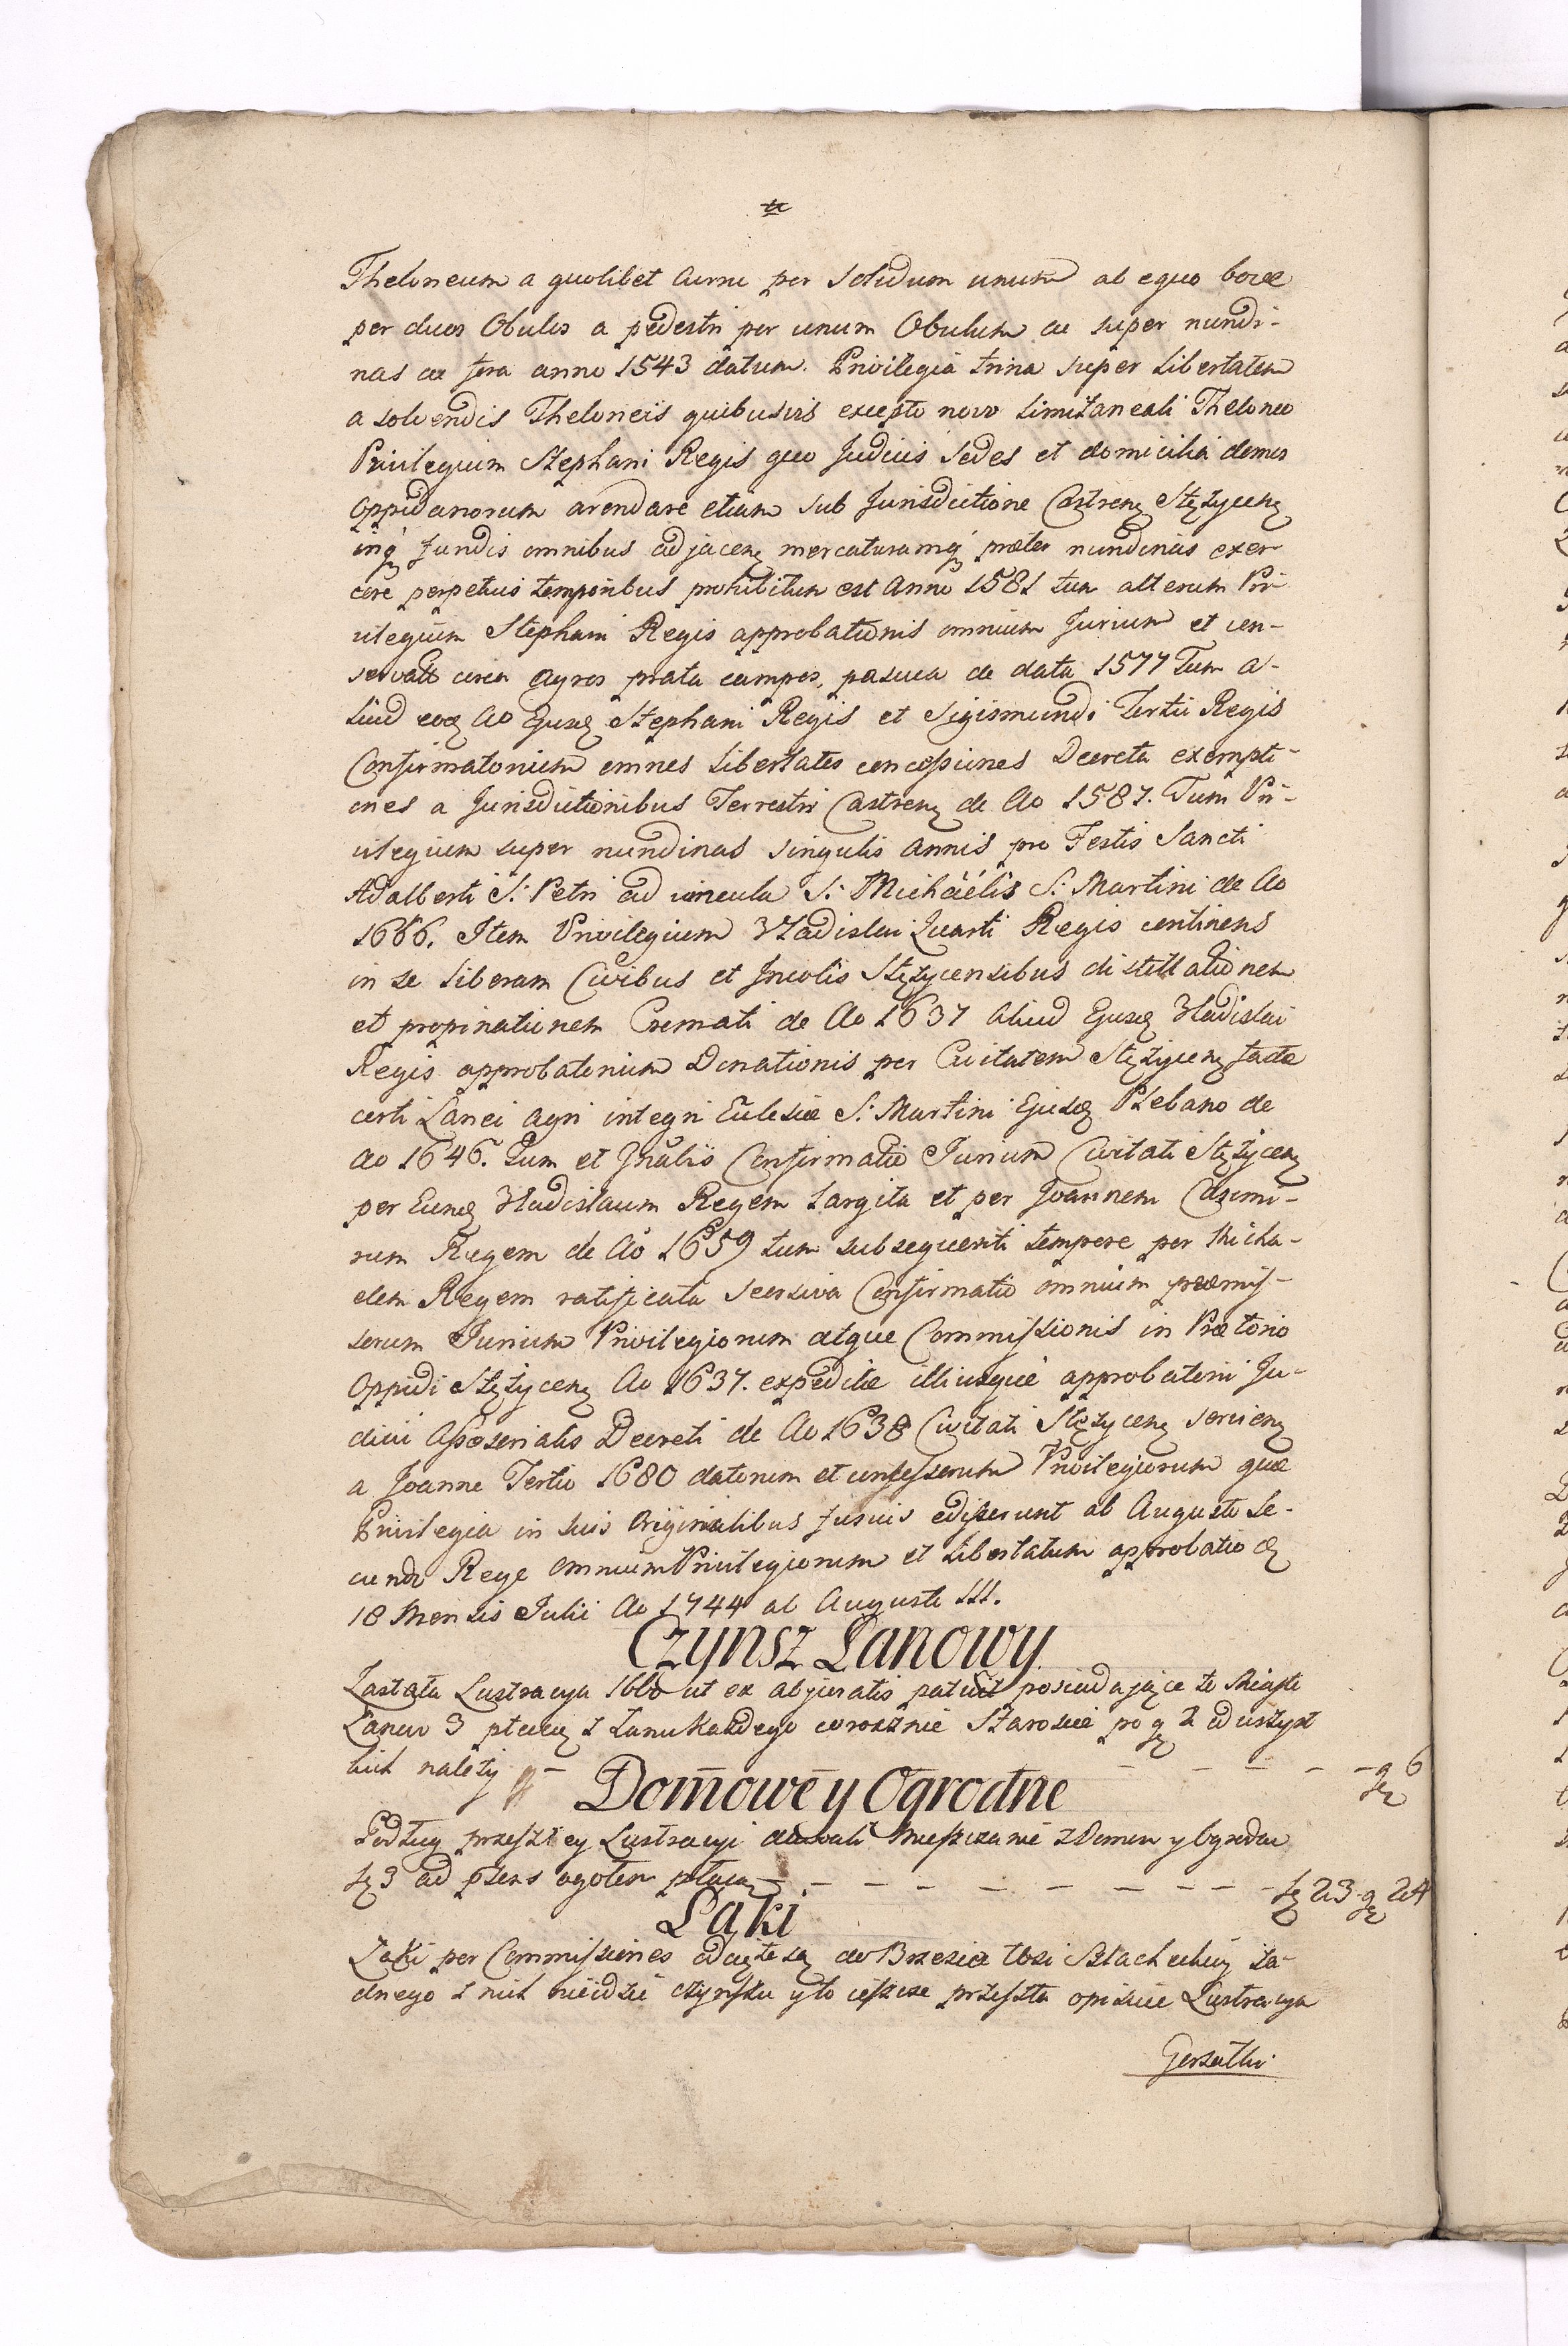 Theloneum a quolibet curru per Solidum unum ab equo bove
per duos Obulos a pedestri per unum Obulum ac super nundi-
nas ac fora anno 1543 datum. Privilegia trina super Libertatem
a solvendis Theloneis quibusvis excepto novo Limitaneali Theloneo
Privilegium Stephani Regis quo Judeis Sedes et domicilia domos
Oppidanorum arendare etiam sub Jurisdictione Castren Stężycen
inq fundis omnibus adjacen mercaturamq præter nundinas exer
cere perpetuis temporibus prohibitum est Anno 1581 tum alterum Pri
vilegium Stephani Regis approbationis omnium Jurium et con-
servat circa Agros prata campos, pascua de data 1577 Tum a-
liud eod Ao Ejusd Stephani Regis et Sigismundi Tertii Regis
Confirmatorium omnes Libertates concessiones Decreta exempti-
ones a Jurisdictionibus Terrestri Castren de Ao 1587. Tum Pri-
vilegium super nundinas singulis Annis pro Festis Sancti
Adalberti S: Petri ad vincula S: Michäelis S: Martini de Ao
1666. Item Privilegium Wladislai Quarti Regis continens
in se Liberam Civibus et Incolis Stężycensibus distillationem
et propinationem Cremati de Ao 1637 Aliud Ejusd Wladislai
Regis approbatorium Donationis per Civitatem Stężycen factæ
certi Lanei Agri integri Ecclesiæ S: Martini Ejusd Plebano de
Ao 1646. Tum et Gnalis Confirmatio Jurium Civitati Stężycen
per Eund Wladislaum Regem Largita et per Joannem Casimi-
rum Regem de Ao 1659 tum subsequenti tempore per Micha-
elem Regem ratificata Seorsiva Confirmatio omnium præmis-
sorum Jurium Privilegiorum atque Commissionis in Prætorio
Oppidi Stężycen Ao 1637. expeditæ illiusque approbatorii Ju-
dicii Assessorialis Decreti de Ao 1638 Civitati Stężycen servien
a Joanne Tertio 1680 datorum et concessorum Privilegiorum quæ
Privilegia in suis Originalibus ab Augusto Se-
cundo Rege omnium Privilegiorum et Libertatum approbatio
18 Mensis Julii Ao 1744 ab Augusto III.
Czynsz Łanowy
Zastała Lustracya 1660 ut ex abjuratis patuit posiadające to Miasto
Łanow 3 płacą z Łanu każdego corocznie Staroscie po g 2 od wszyst
kich należy — — — — — g 6
Domowe y Ogrodne
Podług przeszłey Lustracyi dawali Mieszczanie z Domow y Ogrodow
ad præns ogołem płacą — — — — — — — — — 23 g 24
Łąki
Łąki per Commissiones odcięte są do Brzezia Wsi Szlacheckiey ża-
dnego z nich nieidzie czynszu y to ieszcze przeszła opisuie Lustracya